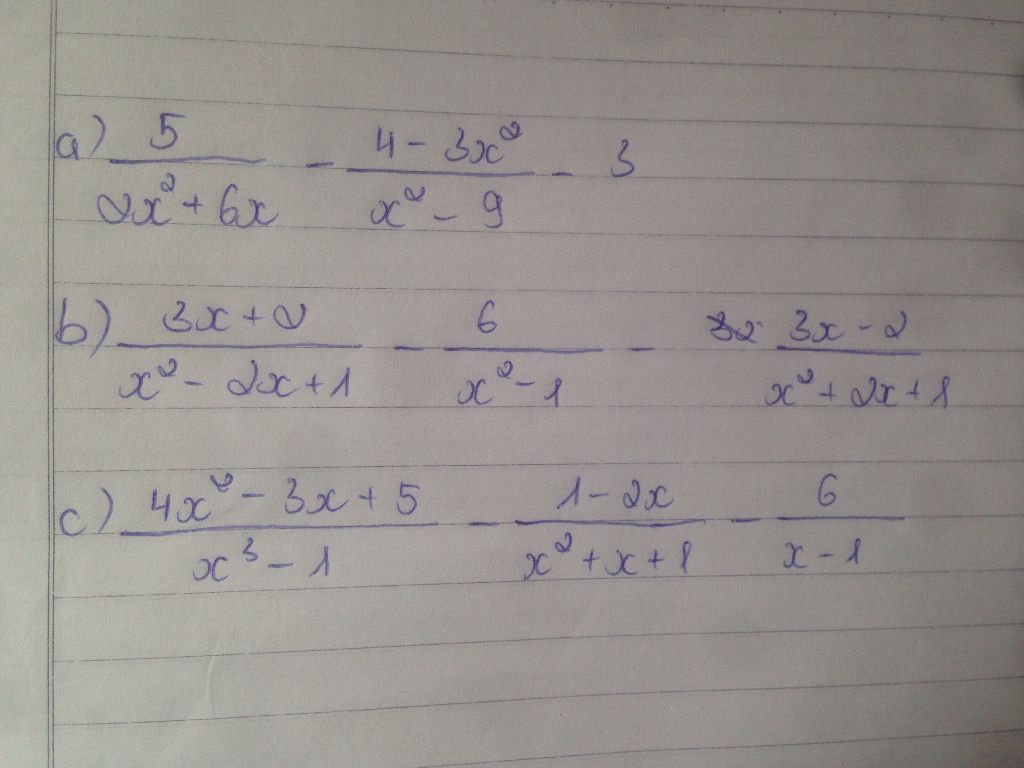 a) \frac{5}{2x^2 + 6x} - \frac{4 - 3x^2}{x^2 - 9} - 3
b) \frac{3x + 2}{x^2 - 2x + 1} - \frac{6}{x^2 - 1} - \frac{3x - 2}{x^2 + 2x + 1}
c) \frac{4x^2 - 3x + 5}{x^3 - 1} - \frac{1 - 2x}{x^2 + x + 1} - \frac{6}{x - 1}